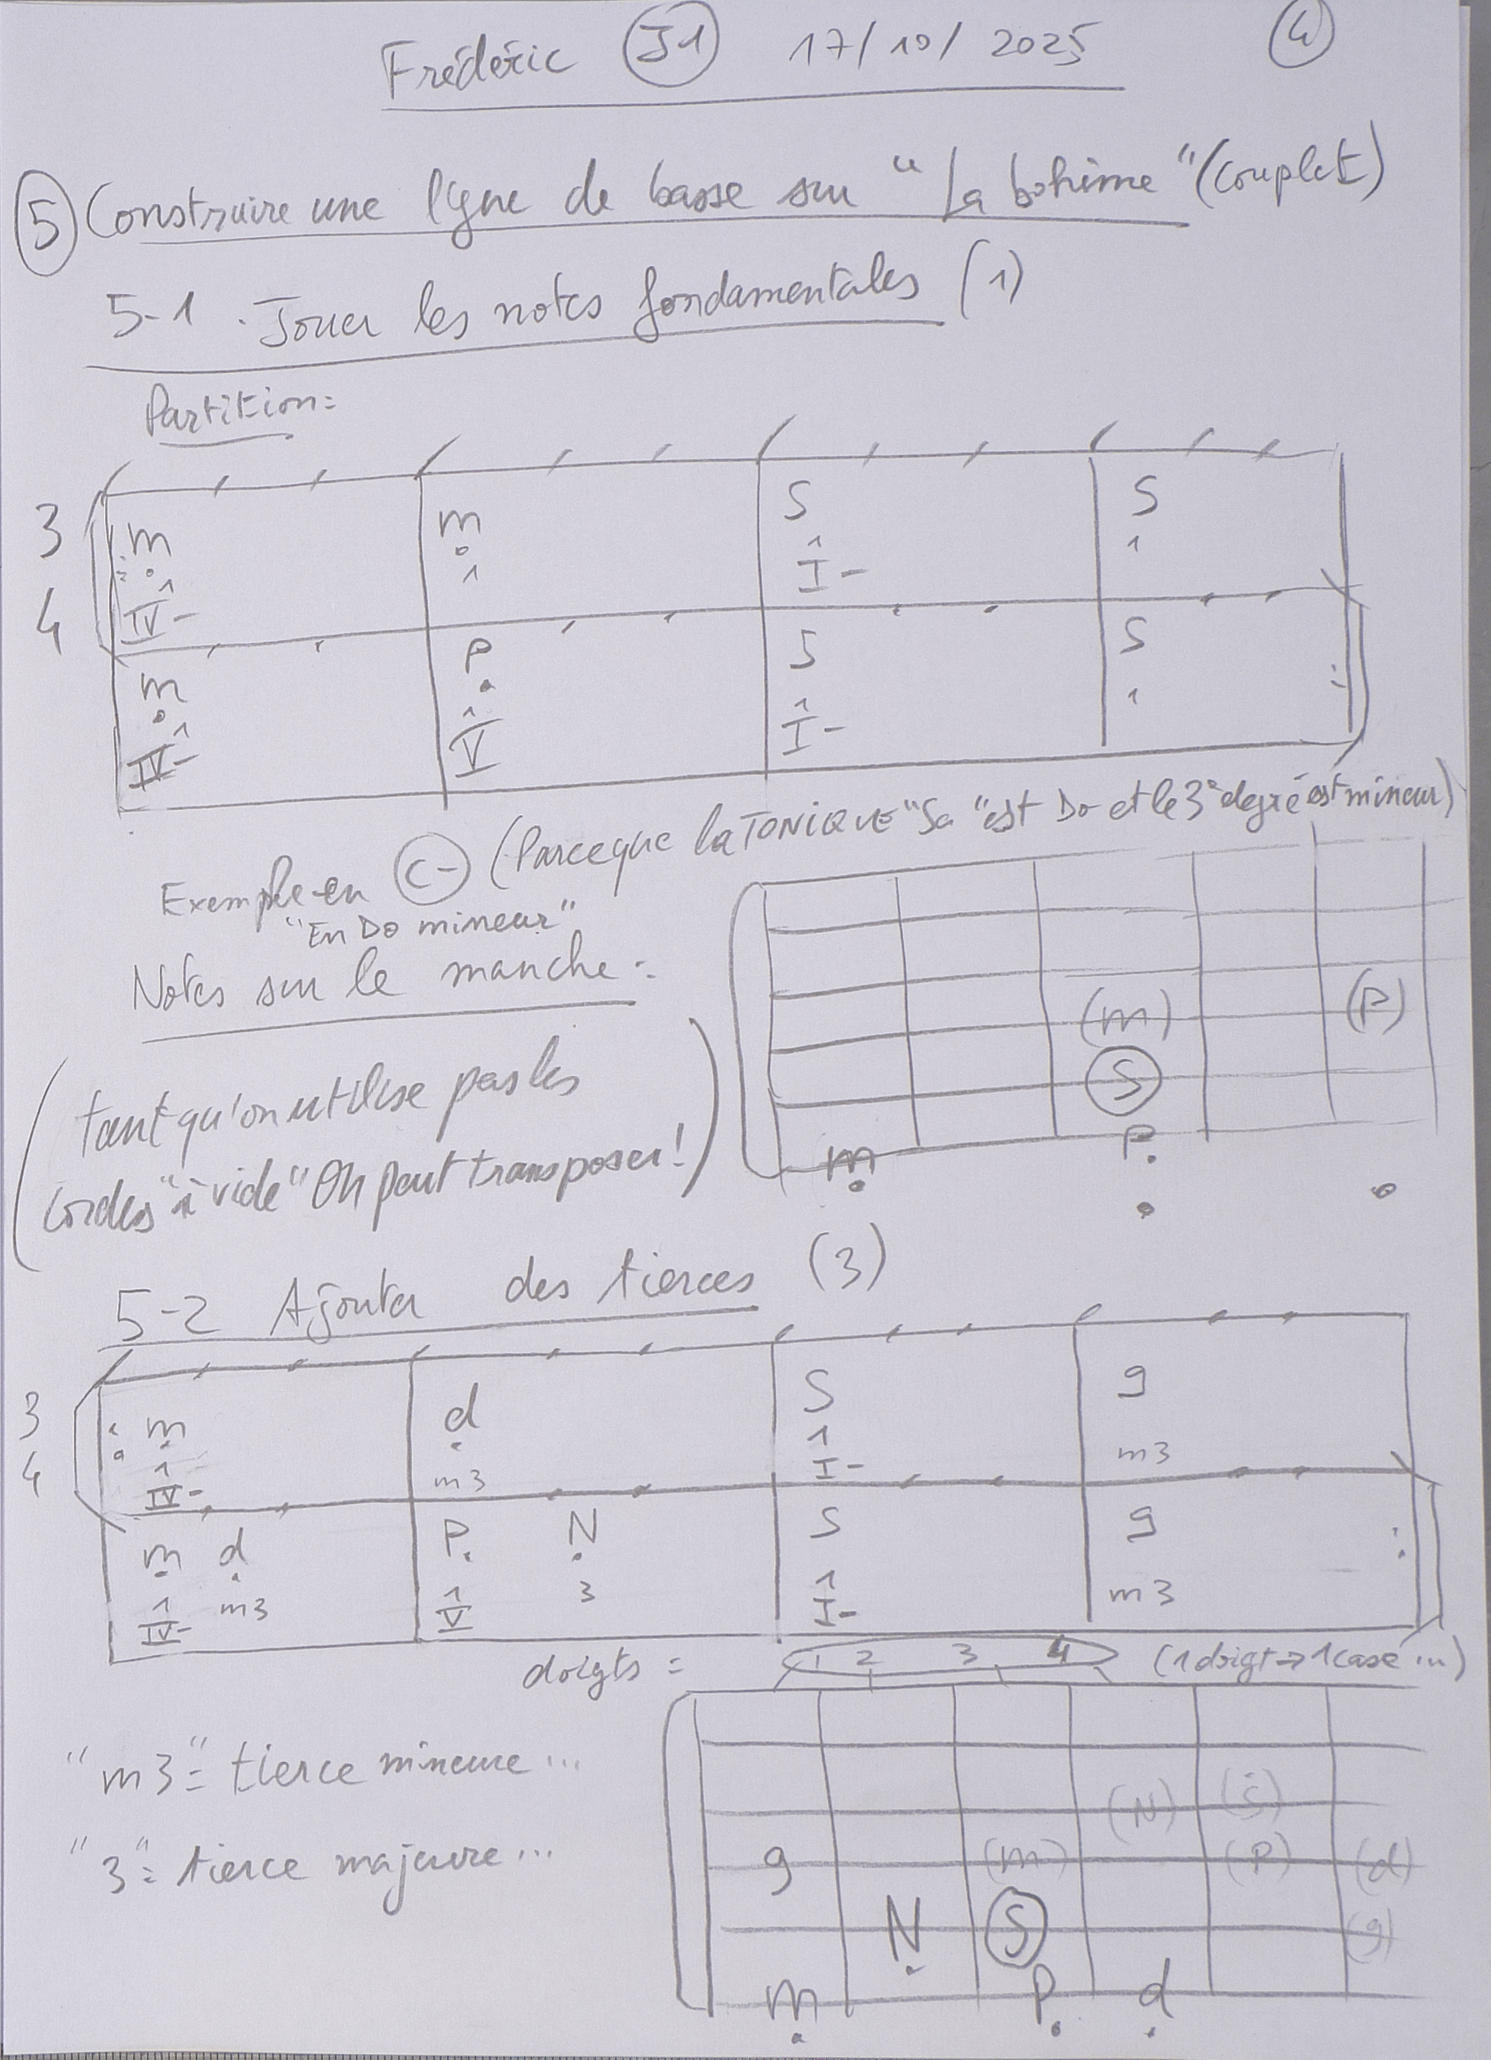 Frédéric J1 17/10/2025 4
5 Construire une ligne de basse sur "La bohème" (couplet)
5-1. Jouer les notes fondamentales (1)
Partition:
3 m m S S
4 IV- 1 1 I- 1
m P S S
IV- 1 V 1 I- 1
Exemple en C- (Parceque la TONIQUE "Sa" est Do et le 3° degré est mineur)
"En Do mineur"
Notes sur le manche:
(m) (P)
S
m P
(tant qu'on utilise pas les
cordes "à vide" On peut transposer!)
5-2 Ajouter des tierces (3)
3 m d S g
4 1 IV- m3 1 I- m3
m d P N S g
1 IV- m3 1 V 3 1 I- m3
doigts = 1 2 3 4 (1 doigt → 1 case ...)
"m3" = tierce mineure ...
"3" = tierce majeure ...
(N) (S)
g (m) (P) (d)
N S (g)
m P d